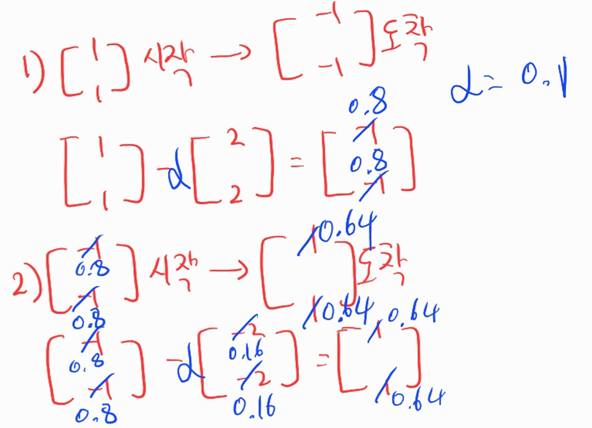 1) [1 1] 시작 → [-1 -1] 도착
α = 0.1
[1 1] - α [2 2] = [-1 0.8 -1 0.8]
2) [-1 0.8 -1 0.8] 시작 → [1 0.64 1 0.64] 도착
[-1 0.8 -1 0.8] - α [-2 0.16 -2 0.16] = [1 0.64 1 0.64]